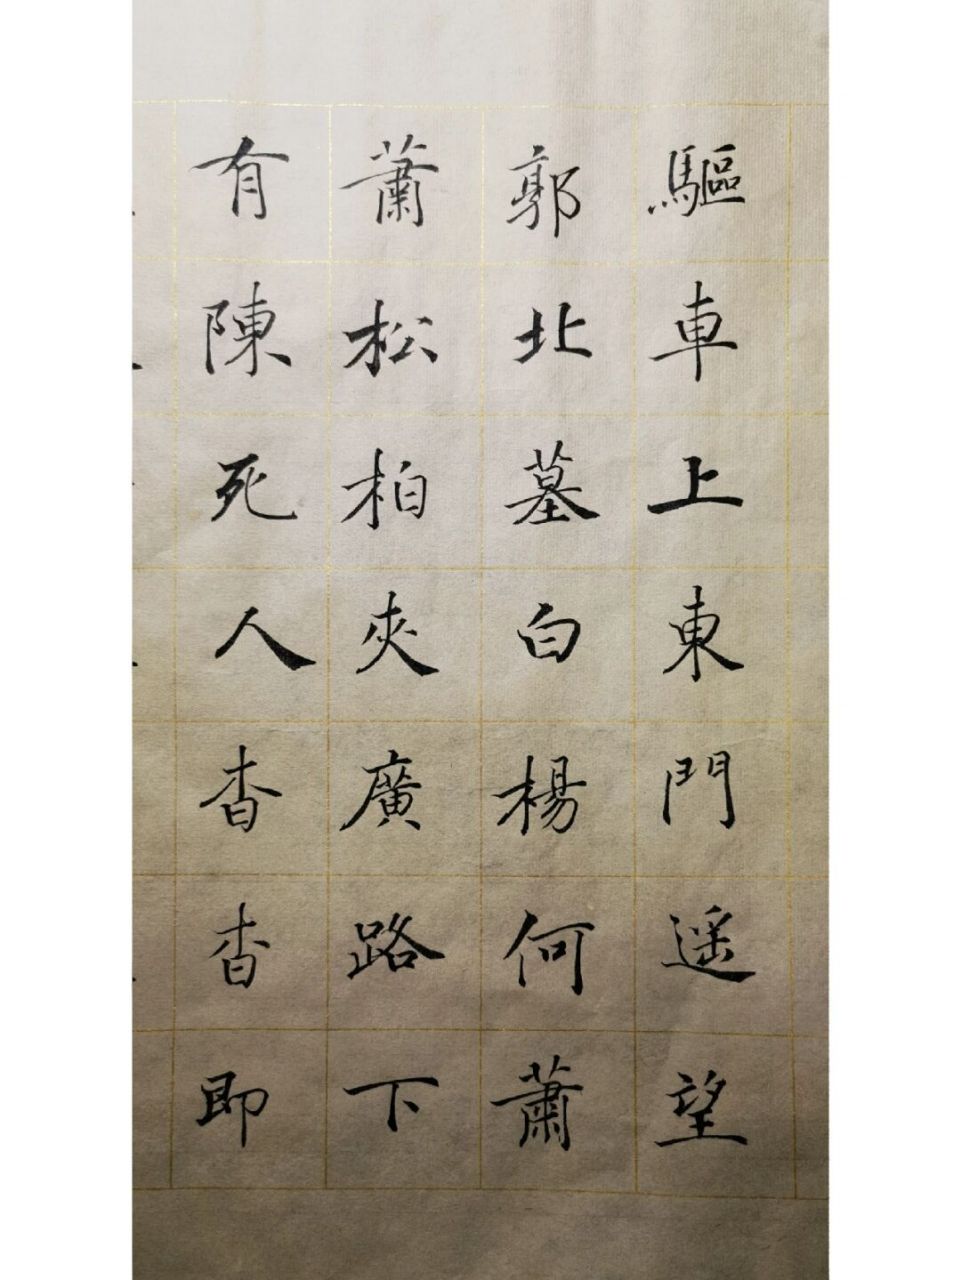 驅車上東門遥望
郭北墓白楊何蕭
蕭松柏夾廣路下
有陳死人杳杳即